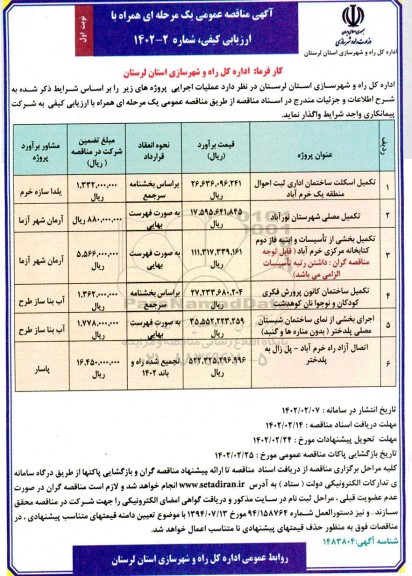 نوبت اول
آگهی مناقصه عمومی یک مرحله ای همراه با
ارزیابی کیفی، شماره ۲-۱۴۰۲
وزارت راه و شهرسازی
اداره کل راه و شهرسازی استان لرستان
کار فرما: اداره کل راه و شهرسازی استان لرستان
اداره کل راه و شهرسازی استان لرستان در نظر دارد عملیات اجرایی پروژه های زیر را بر اساس شرایط ذکر شده به
شرح اطلاعات و جزئیات مندرج در اسناد مناقصه از طریق مناقصه عمومی یک مرحله ای همراه با ارزیابی کیفی به شرکت
پیمانکاری واجد شرایط واگذار نماید.
ردیف | عنوان پروژه | قیمت برآورد (ریال) | نحوه انعقاد قرارداد | مبلغ تضمین شرکت در مناقصه (ریال) | مشاور برآورد پروژه
۱ | تکمیل اسکلت ساختمان اداری ثبت احوال منطقه یک خرم آباد | ۲۶,۶۳۶,۰۹۶,۲۴۱ ریال | براساس بخشنامه سرجمع | ۱,۳۳۲,۰۰۰,۰۰۰ ریال | یلدا سازه خرم
۲ | تکمیل مصلی شهرستان نورآباد | ۱۷,۵۹۵,۶۴۱,۸۴۵ ریال | به صورت فهرست بهایی | ۸۸۰,۰۰۰,۰۰۰ ریال | آرمان شهر آزما
۳ | تکمیل بخشی از تأسیسات و ابنیه فاز دوم کتابخانه مرکزی خرم آباد ( قابل توجه مناقصه گران : داشتن رتبه تأسیسات الزامی می باشد) | ۱۱۱,۳۱۷,۳۳۹,۱۶۱ ریال | به صورت فهرست بهایی | ۵,۵۶۶,۰۰۰,۰۰۰ ریال | آرمان شهر آزما
۴ | تکمیل ساختمان کانون پرورش فکری کودکان و نوجوا نان کوهدشت | ۲۷,۲۳۳,۶۸۰,۲۰۴ ریال | براساس بخشنامه سرجمع | ۱,۳۶۲,۰۰۰,۰۰۰ ریال | آب بنا ساز طرح
۵ | اجرای بخشی از نمای ساختمان شبستان مصلی پلدختر ( بدون مناره ها و گنبد) | ۳۵,۵۵۲,۲۲۳,۲۵۹ ریال | به صورت فهرست بهایی | ۱,۷۷۸,۰۰۰,۰۰۰ ریال | آب بنا ساز طرح
۶ | اتصال آزاد راه خرم آباد - پل زال به پلدختر | ۵۲۲,۳۲۵,۲۹۶,۹۹۶ ریال | تجمیع شده راه و باند ۱۴۰۲ | ۱۶,۴۵۰,۰۰۰,۰۰۰ ریال | پاسار
تاریخ انتشار در سامانه : ۱۴۰۲/۰۲/۰۷
مهلت دریافت اسناد مناقصه : ۱۴۰۲/۰۲/۱۴
مهلت تحویل پیشنهادات مورخ : ۱۴۰۲/۰۲/۲۴
تاریخ بازگشایی پاکات مناقصه عمومی مورخ : ۱۴۰۲/۰۲/۲۵
کلیه مراحل برگزاری مناقصه از دریافت اسناد مناقصه تا ارائه پیشنهاد مناقصه گران و بازگشایی پاکتها از طریق درگاه سامانه
ی تدارکات الکترونیکی دولت ( ستاد ) به آدرس www.setadiran.ir انجام خواهد شد و لازم است مناقصه گران در صورت
عدم عضویت قبلی ، مراحل ثبت نام در سایت مذکور و دریافت گواهی امضای الکترونیکی را جهت شرکت در مناقصه محقق
سازند . و نیز دستورالعمل شماره ۹۴/۱۵۸۷۶۴ مورخ ۱۳۹۴/۰۷/۱۳ با موضوع تعیین دامنه قیمتهای متناسب پیشنهادی ، در
مناقصات فوق به منظور حذف قیمتهای پیشنهادی نا متناسب اعمال خواهد شد.
شناسه آگهی: ۱۴۸۳۸۰۴
روابط عمومی اداره کل راه و شهرسازی استان لرستان